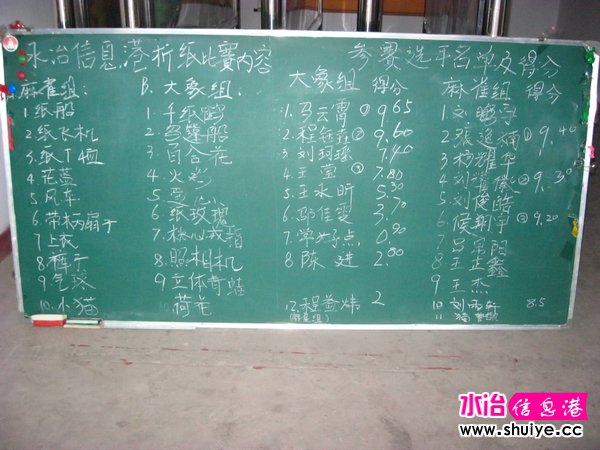 水冶信息港折纸比賽内容
参赛选手名单及得分
麻雀组:
1.纸船
2.纸飞机
3.纸T恤
4.花蓝
5.风车
6.带柄扇子
7上衣
8裤子
9气球
10.小猫
B.大象组:
1.千纸鹤
2.乌篷船
3.百合花
4.火彩
6.纸玫瑰
7.桃心戒指
8.照相机
9立体青蛙
荷花
大象组 得分
1.马云霄 ① 9.65
2.程鈺森 ② 9.60
3.刘珂瑶 7.40
4.王莹 ③ 7.80
5.王永昕 5.30
6. 3.70
7. 0.90
8 陈进 2.80
12.程益炜 2
麻雀组 得分
1.刘鹏宇
2. ① 9.40
3.杨耀华
4.刘 ② 9.30
5.刘俊皓
6.侯翔宇 ③ 9.20
7.吕泉阳
8.王正鑫
9 王杰
10 刘雨轩 8.5
11
水冶信息港
www.shuiye.cc